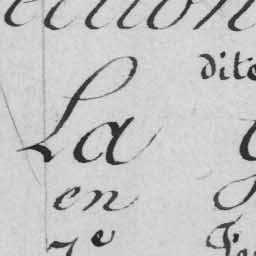 ection
dite
La
en
7e